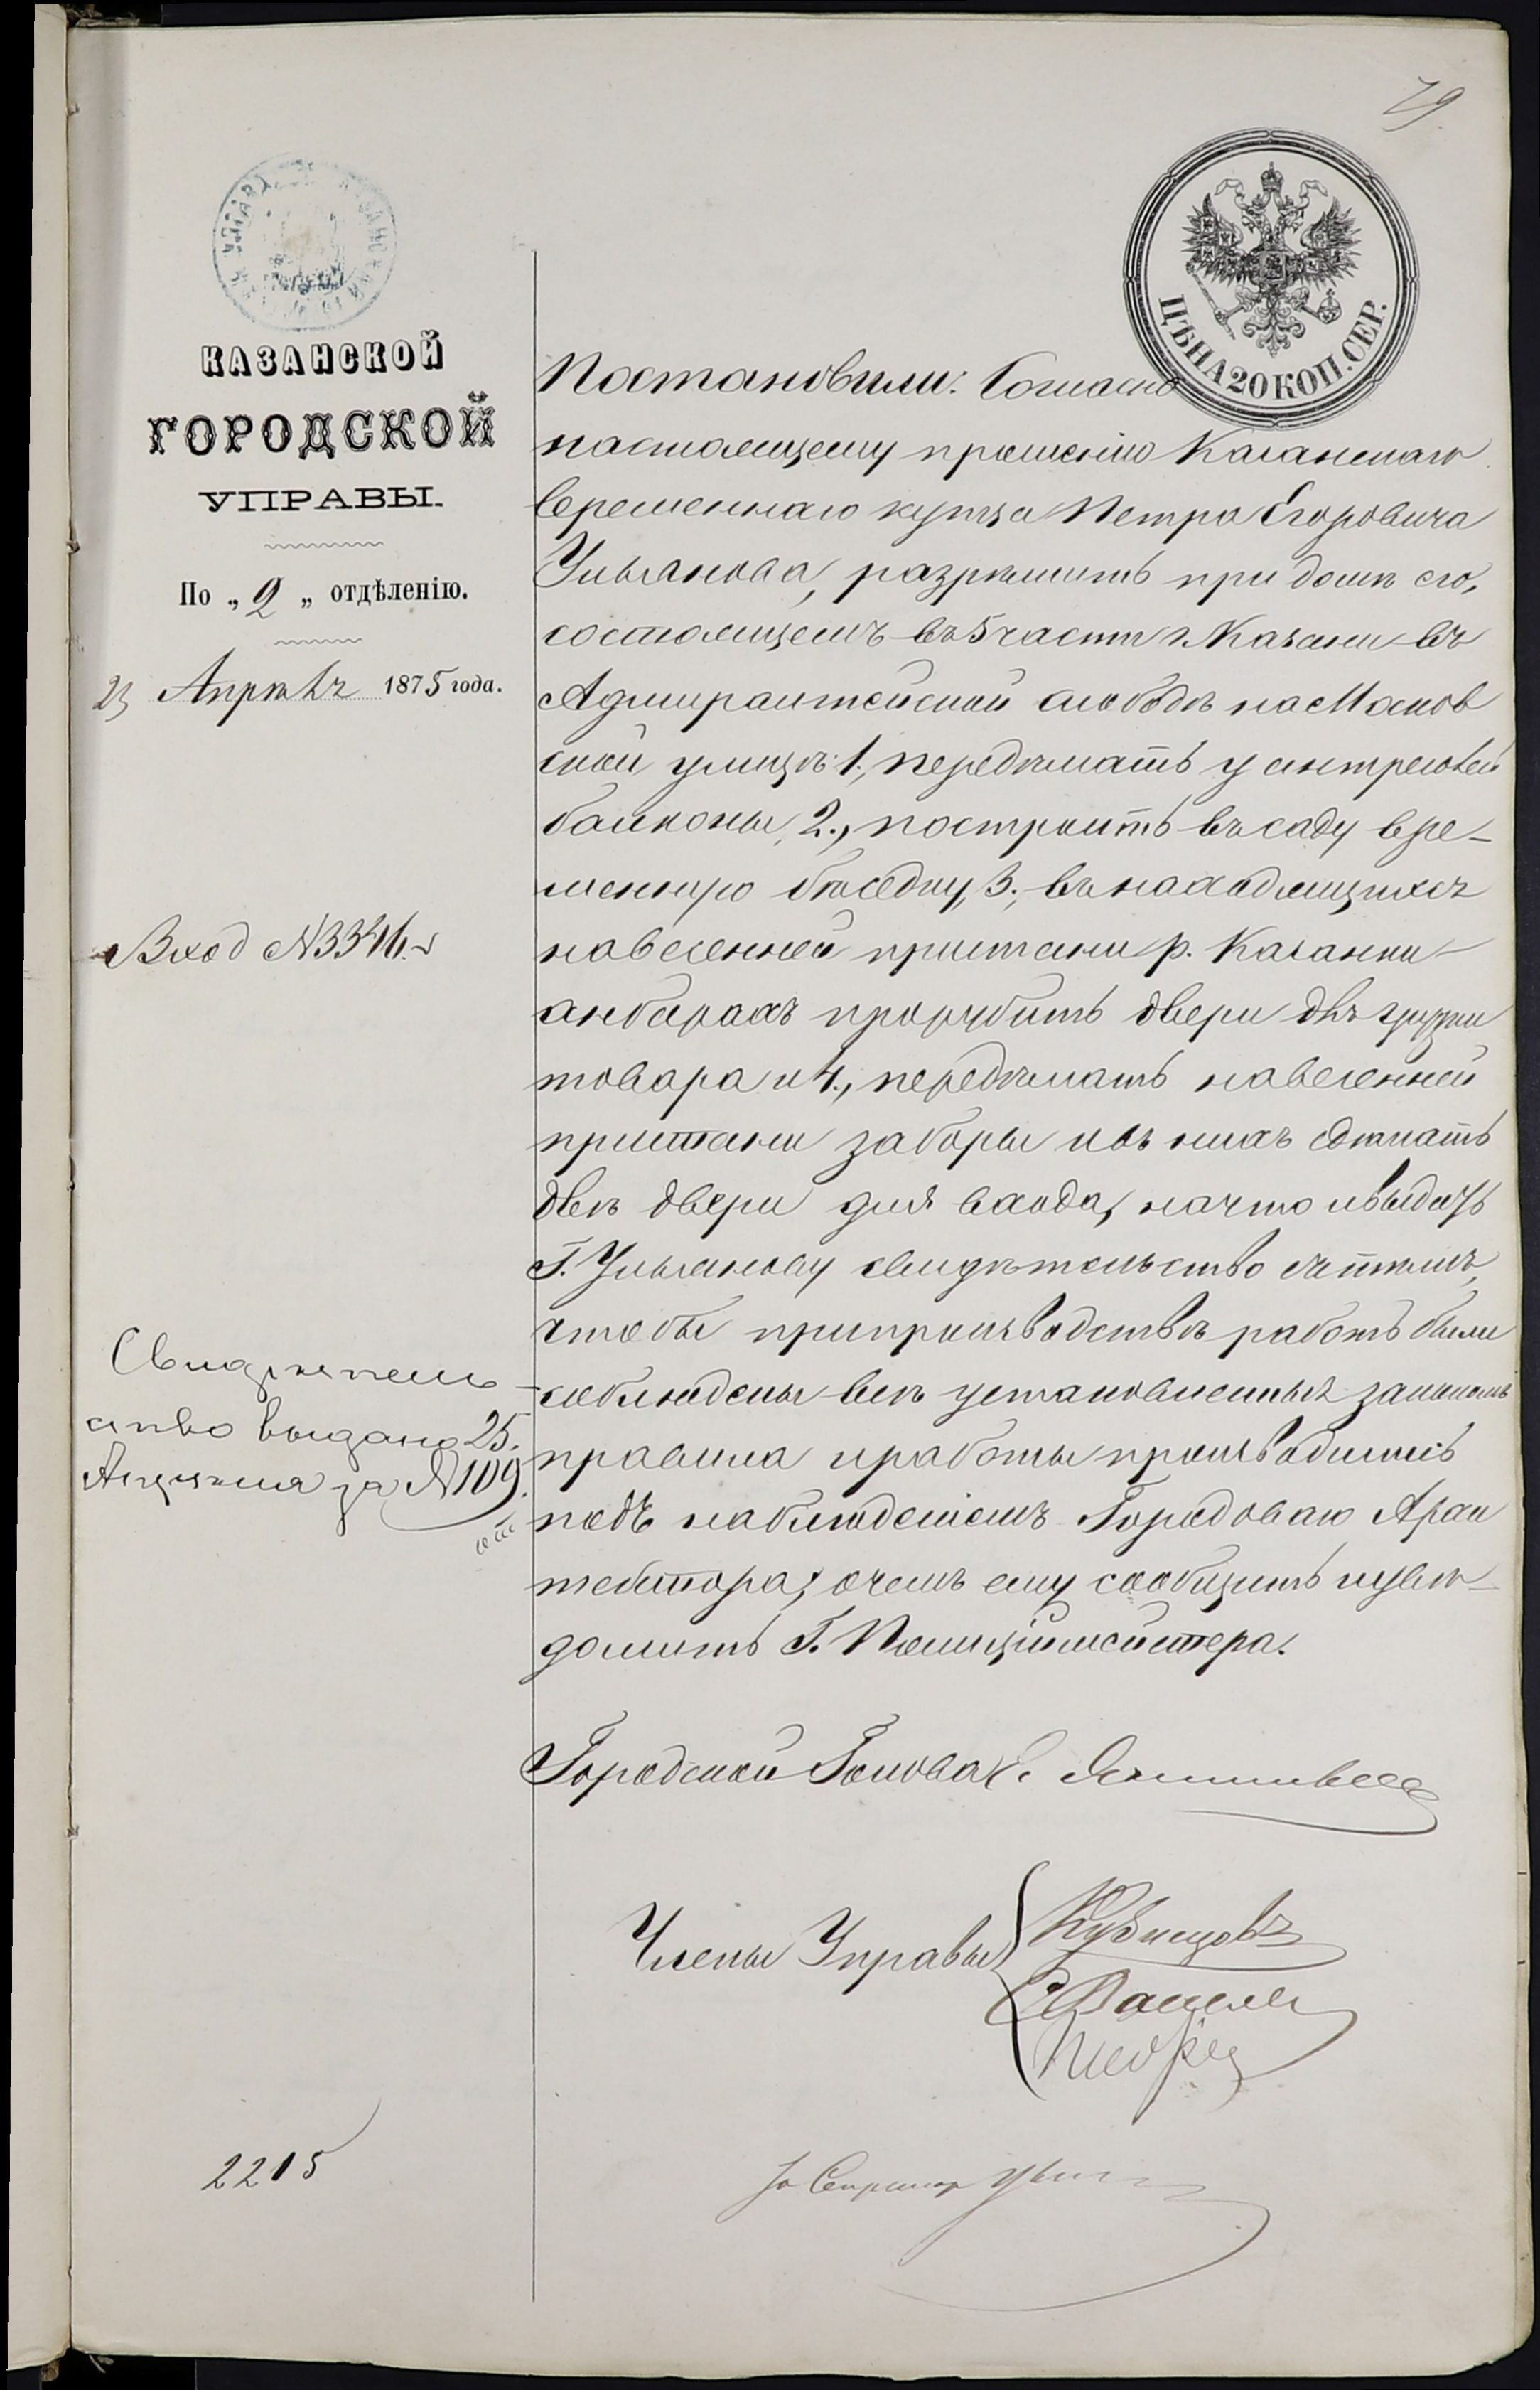 79
ЦѢНА 20 КОП. СЕР.
КАЗАНСКОЙ
ГОРОДСКОЙ
УПРАВЫ.
По „ 2 „ отдѣленію.
23 Апрѣля 1875 года.
Вход №3346.
Свидѣтель-
ство выдано 25.
Апрѣля за №109.
2215
Постановили: Согласно
настоящему прошенію Казанскаго
временнаго купца Петра Егоровича
Ульянова, разрѣшить при домѣ его,
состоящемъ въ 5 части г. Казани въ
Адмиралтейской слободѣ на Москов
ской улицѣ: 1., передѣлать у антресолей
балконы, 2., построить въ саду вре-
менную бесѣдку, 3., въ находящихся
на весенней пристани р. Казанки
анбарахъ прорубить двери для грузки
товара и 4., передѣлать на весенней
пристани заборы и въ нихъ сдѣлать
двѣ двери для входа, на что и выдать
Г. Ульянову свидѣтельство съ тѣмъ,
чтобы при производствѣ работъ были
соблюдены всѣ установленныя закономъ
правила и работы производились
подъ наблюденіемъ Городоваго Архи
тектора, о чемъ ему сообщить и увѣ-
домить Г. Полиціймейстера.
Городской Голова Е.
Члены Управы Кузнецовъ
За Секретаря